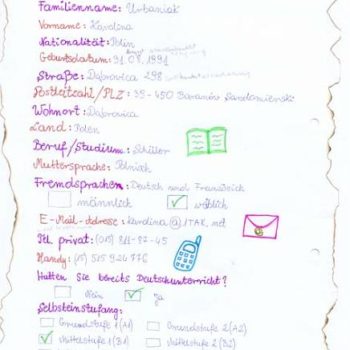 Familienname: Urbaniak
Vorname: Karolina
Nationalität: Polin
Geburtsdatum: 31 08 1991
Straße: Dąbrowica 298
Postleitzahl/PLZ: 39-450 Baranów Sandomierski
Wohnort: Dąbrowica
Land: Polen
Beruf/Studium: Schüler
Muttersprache: Polnisch
Fremdsprachen: Deutsch und Französich
männlich weiblich
E-Mail-Adresse: karolina@1TAK.net
Tel. privat: (015) 811-87-45
Handy: (15) 515 924 776
Hatten Sie bereits Deutschunterricht?
Nein ja
Selbsteinstufung:
Grundstufe 1 (A1) Grundstufe 2 (A2)
Mittelstufe 1 (B1) Mittelstufe 2 (B2)